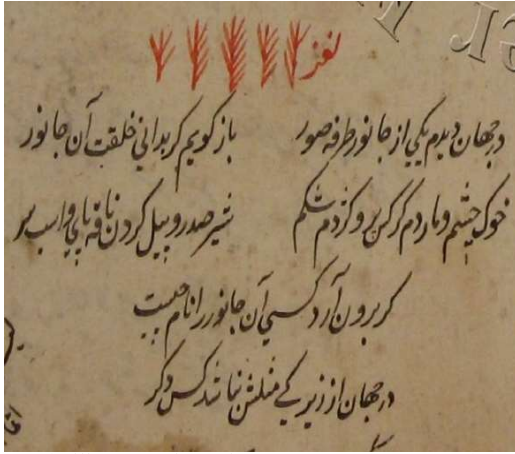 لغز
در جهان دیدم یکی از جانور طرفه صور باز کویم کر بدانی خلقت آن جانور
خوک چشم و مار دم کرکس برو کژدم شکم شیر صدر و پیل کردن ناقه پای و اسب سر
کر برون آرد کسی آن جانور را نام چیست
در جهان از زیرکی مثلش نباشد کس دکر